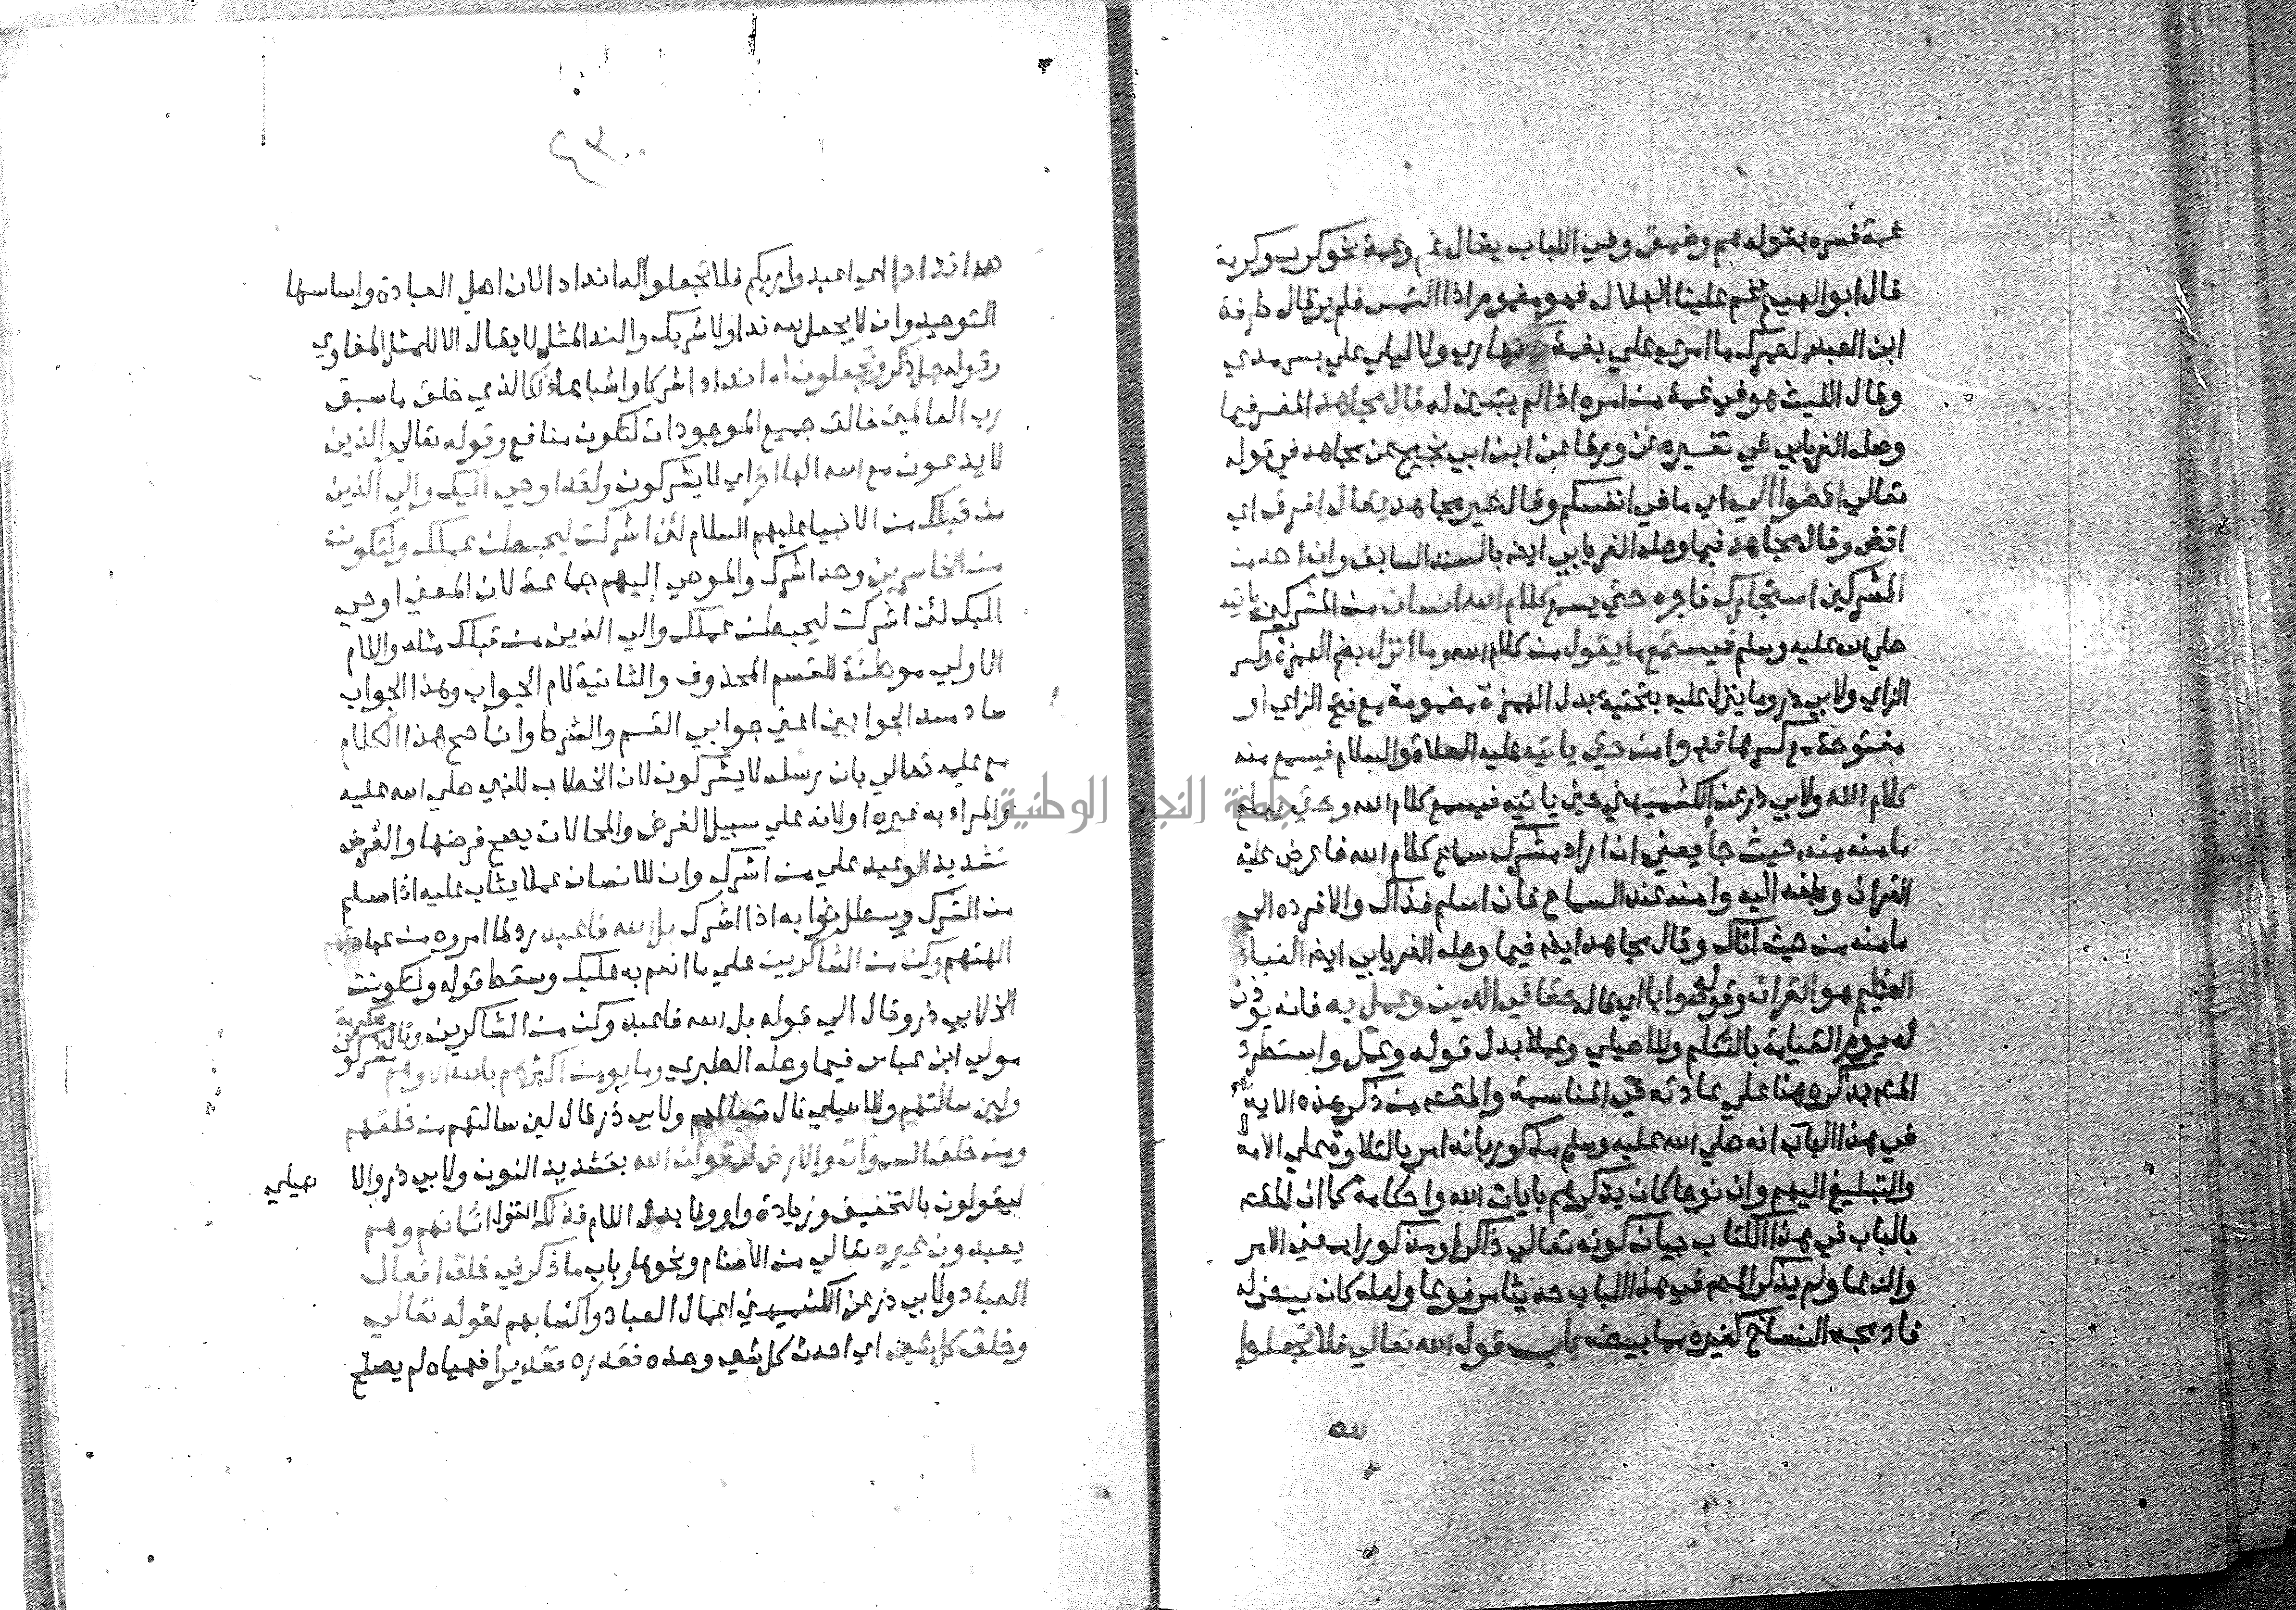 غمة فسره بقوله هم وضيق وفي اللباب يقال غم وغمة نحو كرب وكربة
قال ابو الهيثم غم علينا الهلال فهو مغموم اذا التمس فلم ير قال طرفة
ابن العبد لعمرك ما امري علي بغمة نهاري ولا ليلي علي بسرمدي
وقال الليث هو في غمة من امره اذا لم يتبين له قال مجاهد المفسر فيما
وصله الفريابي في تفسيره عن ورقا عن ابن ابي نجيح عن مجاهد في قوله
تعالي اقضوا الي اي ما في انفسكم وقال غير مجاهد يقال افرق اي
اقض وقال مجاهد فيما وصله الفريابي ايضه بالسند السابق وان احد من
المشركين استجارك فاجره حتي يسمع كلام الله انسان من المشركين ياتيه
صلي الله عليه وسلم فيستمع ما يقول من كلام الله وما انزل بضم الهمزة وكسر
الزاي ولابي ذر وما ينزل عليه بتحتية بدل الهمزة مضمومة مع فتح الزاي او
مفتوحة مع كسرها فهو امن حتي ياتيه عليه الصلاة والسلام فيسمع منه
كلام الله ولابي ذر عن الكشميهني حين ياتيه فيسمع كلام الله وحتي يبلغ
مامنه منه حيث جا يعني ان اراد مشرك سماع كلام الله فاعرض عليه
القران وبلغه اليه وامنه عند السماع فان اسلم فذاك والا فرده الي
مامنه من حيث اتاك وقال مجاهد ايضه فيما وصله الفريابي ايضه النباء
العظيم هو القران وقوله صوابا اي قال حقا في الدين وعمل به فانه يوذن
له يوم القيامة بالتكلم وللاصيلي وعملا بدل قوله وعمل واستطرد
المصه بذكره هنا علي عادته في المناسبة والمقصه من ذكر هذه الاية
في هذا الباب انه صلي الله عليه وسلم مذكور بانه امر بالتلاوة علي الامة
والتبليغ اليهم وان نوحا كان يذكرهم بايات الله واحكامه كما ان المقصه
بالباب في هذا الكتاب بيان كونه تعالي ذاكرا ومذكورا بمعني الامر
والدعا ولم يذكر المصه في هذا الباب حديثا مرفوعا ولعله كان بيض له
فادمجه النساخ كغيره مما بيضه باب قول الله تعالي فلا تجعلوا
لله
٤٣٠
لله اندادا اي اعبدوا ربكم فلا تجعلوا له اندادا لان اصل العبادة واساسها
التوحيد وان لا يجعل لله ندا ولا شريك والند المثل لا يقال الا للمثل المناوي
وقوله جل ذكره وتجعلون له اندادا شركا واشباها ذلك الذي خلق ما سبق
رب العالمين خالق جميع الموجودات لتكون منافع وقوله تعالي والذين
لا يدعون مع الله الها اخر اي لا يشركون ولقد اوحي اليك والي الذين
من قبلك من الانبيا عليهم السلام لئن اشركت ليحبطن عملك ولتكونن
من الخاسرين وحد اشرك والموحي اليهم جماعة لان المعني اوحي
اليك لئن اشركت ليحبطن عملك والي الذين من قبلك مثله واللام
الاولي موطئة للقسم المحذوف والثانية لام الجواب وهذا الجواب
ساد مسد الجوابين اعني جوابي القسم والشرط وانما صح هذا الكلام
مع علمه تعالي بان رسله لا يشركون لان الخطاب للنبي صلي الله عليه
والمراد به غيره او لانه علي سبيل الفرض والمحالات يصح فرضها والغرض
تشديد الوعيد علي من اشرك وان للانسان عملا يثاب عليه اذا سلم
من الشرك ويبطل ثوابه اذا اشرك بل الله فاعبد رد لما امروه من عبادة
الهتهم وكن من الشاكرين علي ما انعم به عليك وسقط قوله ولتكونن
الخ لابي ذر وقال الي قوله بل الله فاعبد وكن من الشاكرين وقال عكرمة
مولي ابن عباس فيما وصله الطبري وما يومن اكثرهم بالله الا وهم مشركون
ولين سالتهم وللاصيلي قال تسالهم ولابي ذر قال لين سالتهم من خلقهم
ومن خلق السموات والارض ليقولن الله بتشديد النون ولابي ذر والاصيلي
ليقولون بالتخفيف وزيادة واو وفا بدل اللام فذلك القول ايمانهم وهم
يعبدون غيره تعالي من الاصنام ونحوها وباب ما ذكر في خلق افعال
العباد ولابي ذر عن الكشميهني اعمال العباد واكتسابهم لقوله تعالي
وخلق كل شيء اي احدث كل شي وحده فقدره تقديرا فهياه لم يصلح
جامعة النجاح الوطنية